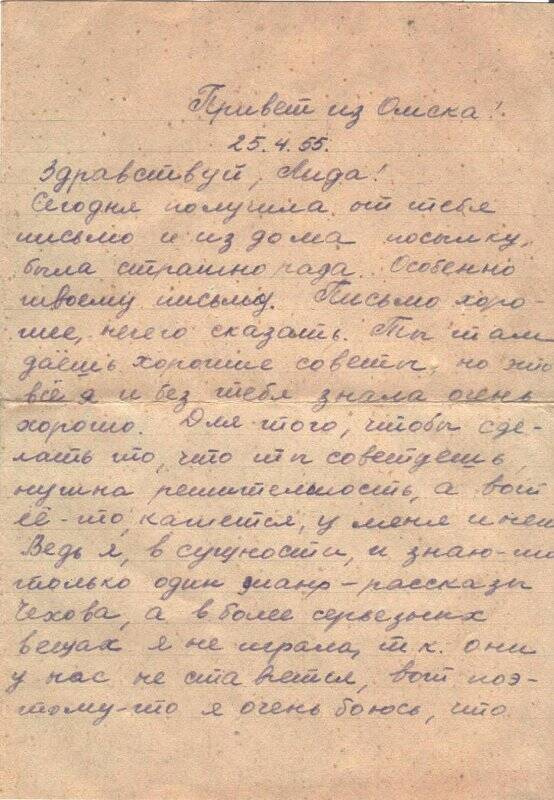 Привет из Омска!
25.4.55.
Здравствуй, Лида!
Сегодня получила от тебя
письмо и из дома посылку,
была страшно рада. Особенно
твоему письму. Письмо хоро-
шее, нечего сказать. Ты там
даёшь хорошие советы, но это
всё я и без тебя знала очень
хорошо. Для того, чтобы сде-
лать то, что ты советуешь,
нужна решительность, а вот
её-то, кажется, у меня и нет
Ведь я, в сущности, и знаю-то
только один жанр – рассказы
Чехова, а в более серьезных
вещах я не играла, т.к. они
у нас не ставятся, вот поэ-
тому-то я очень боюсь, что